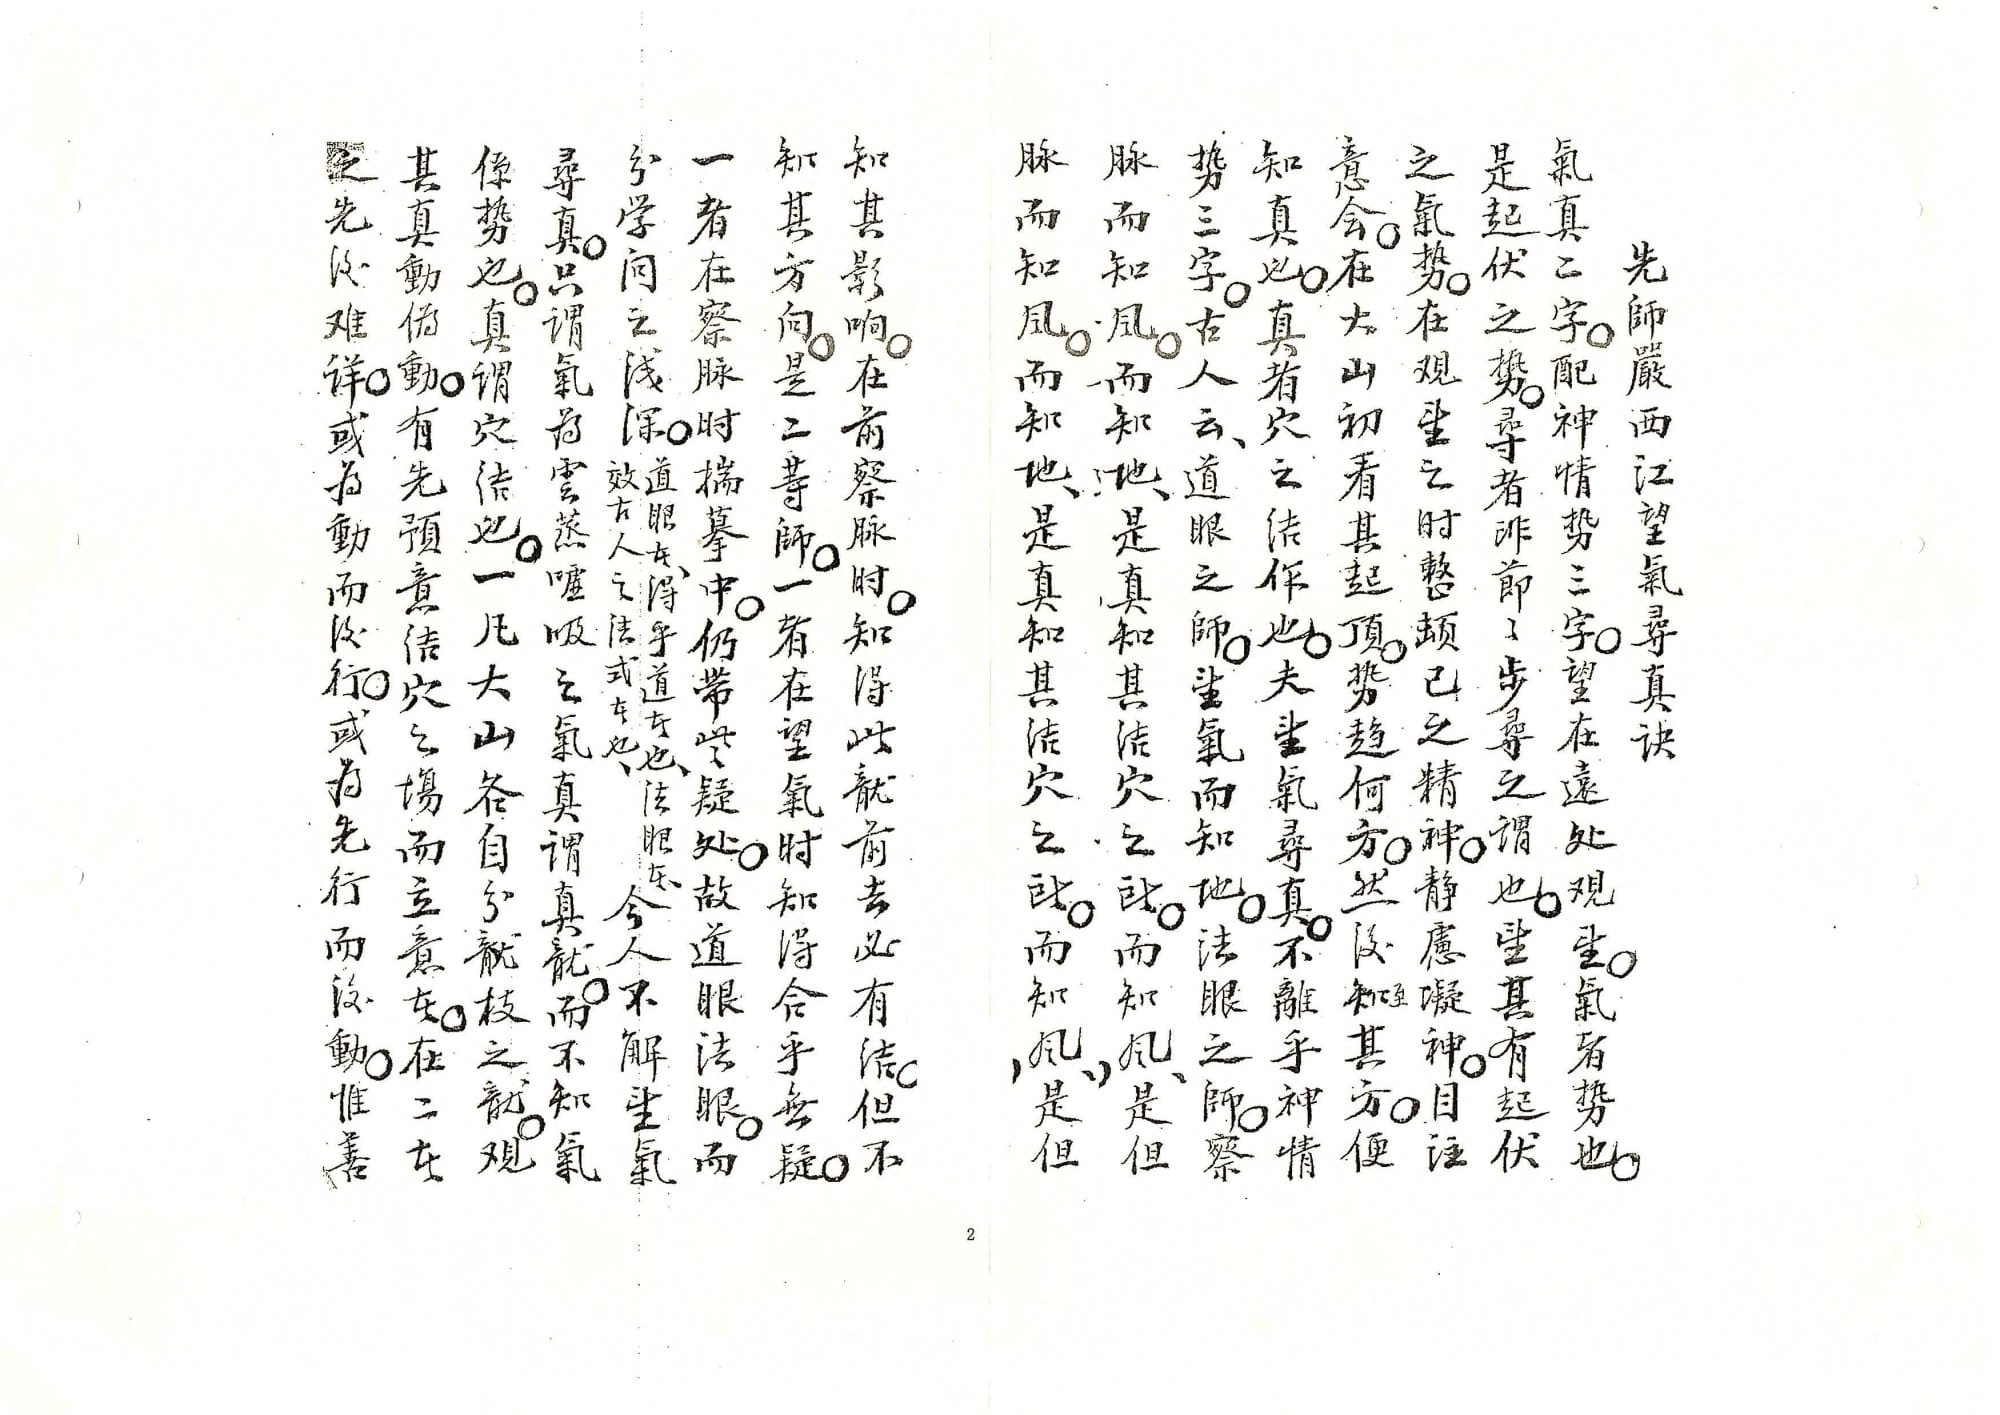 先師嚴西江望氣尋真訣
氣真二字。配神情势三字。望在遠处观望。氣者势也。
是起伏之势。尋者非節々步尋之謂也。望其有起伏
之氣势。在观望之时整頓已之精神。静慮凝神。目注
意会。在大山初看其起頂。势趋何方。然後知至其方。便
知真也。真者穴之结作也。夫望氣尋真。不離乎神情
势三字。古人云、道眼之師。望氣而知地。法眼之師。察
脉而知风。而知地、是真知其结穴之所。而知风、是但
脉而知风。而知地、是真知其结穴之所。而知风、是但
知其影响。在前察脉时。知得此龍前去必有结。但不
知其方向。是二等師。一者在望氣时知得合乎無疑。
一者在察脉时揣摹中。仍带些疑处。故道眼法眼。而
分学问之浅深。道眼在、得乎道在也、法眼在、效古人之法式在也、今人不解望氣
尋真。只谓氣为雲蒸嘘吸之氣真谓真龍。而不知氣
係势也。真谓穴结也。一凡大山各自分龍枝之龍。观
其真動偽動。有先預意结穴之塲而立意在。在二在
之先後难详。或为動而後行。或为先行而後動。惟善
2